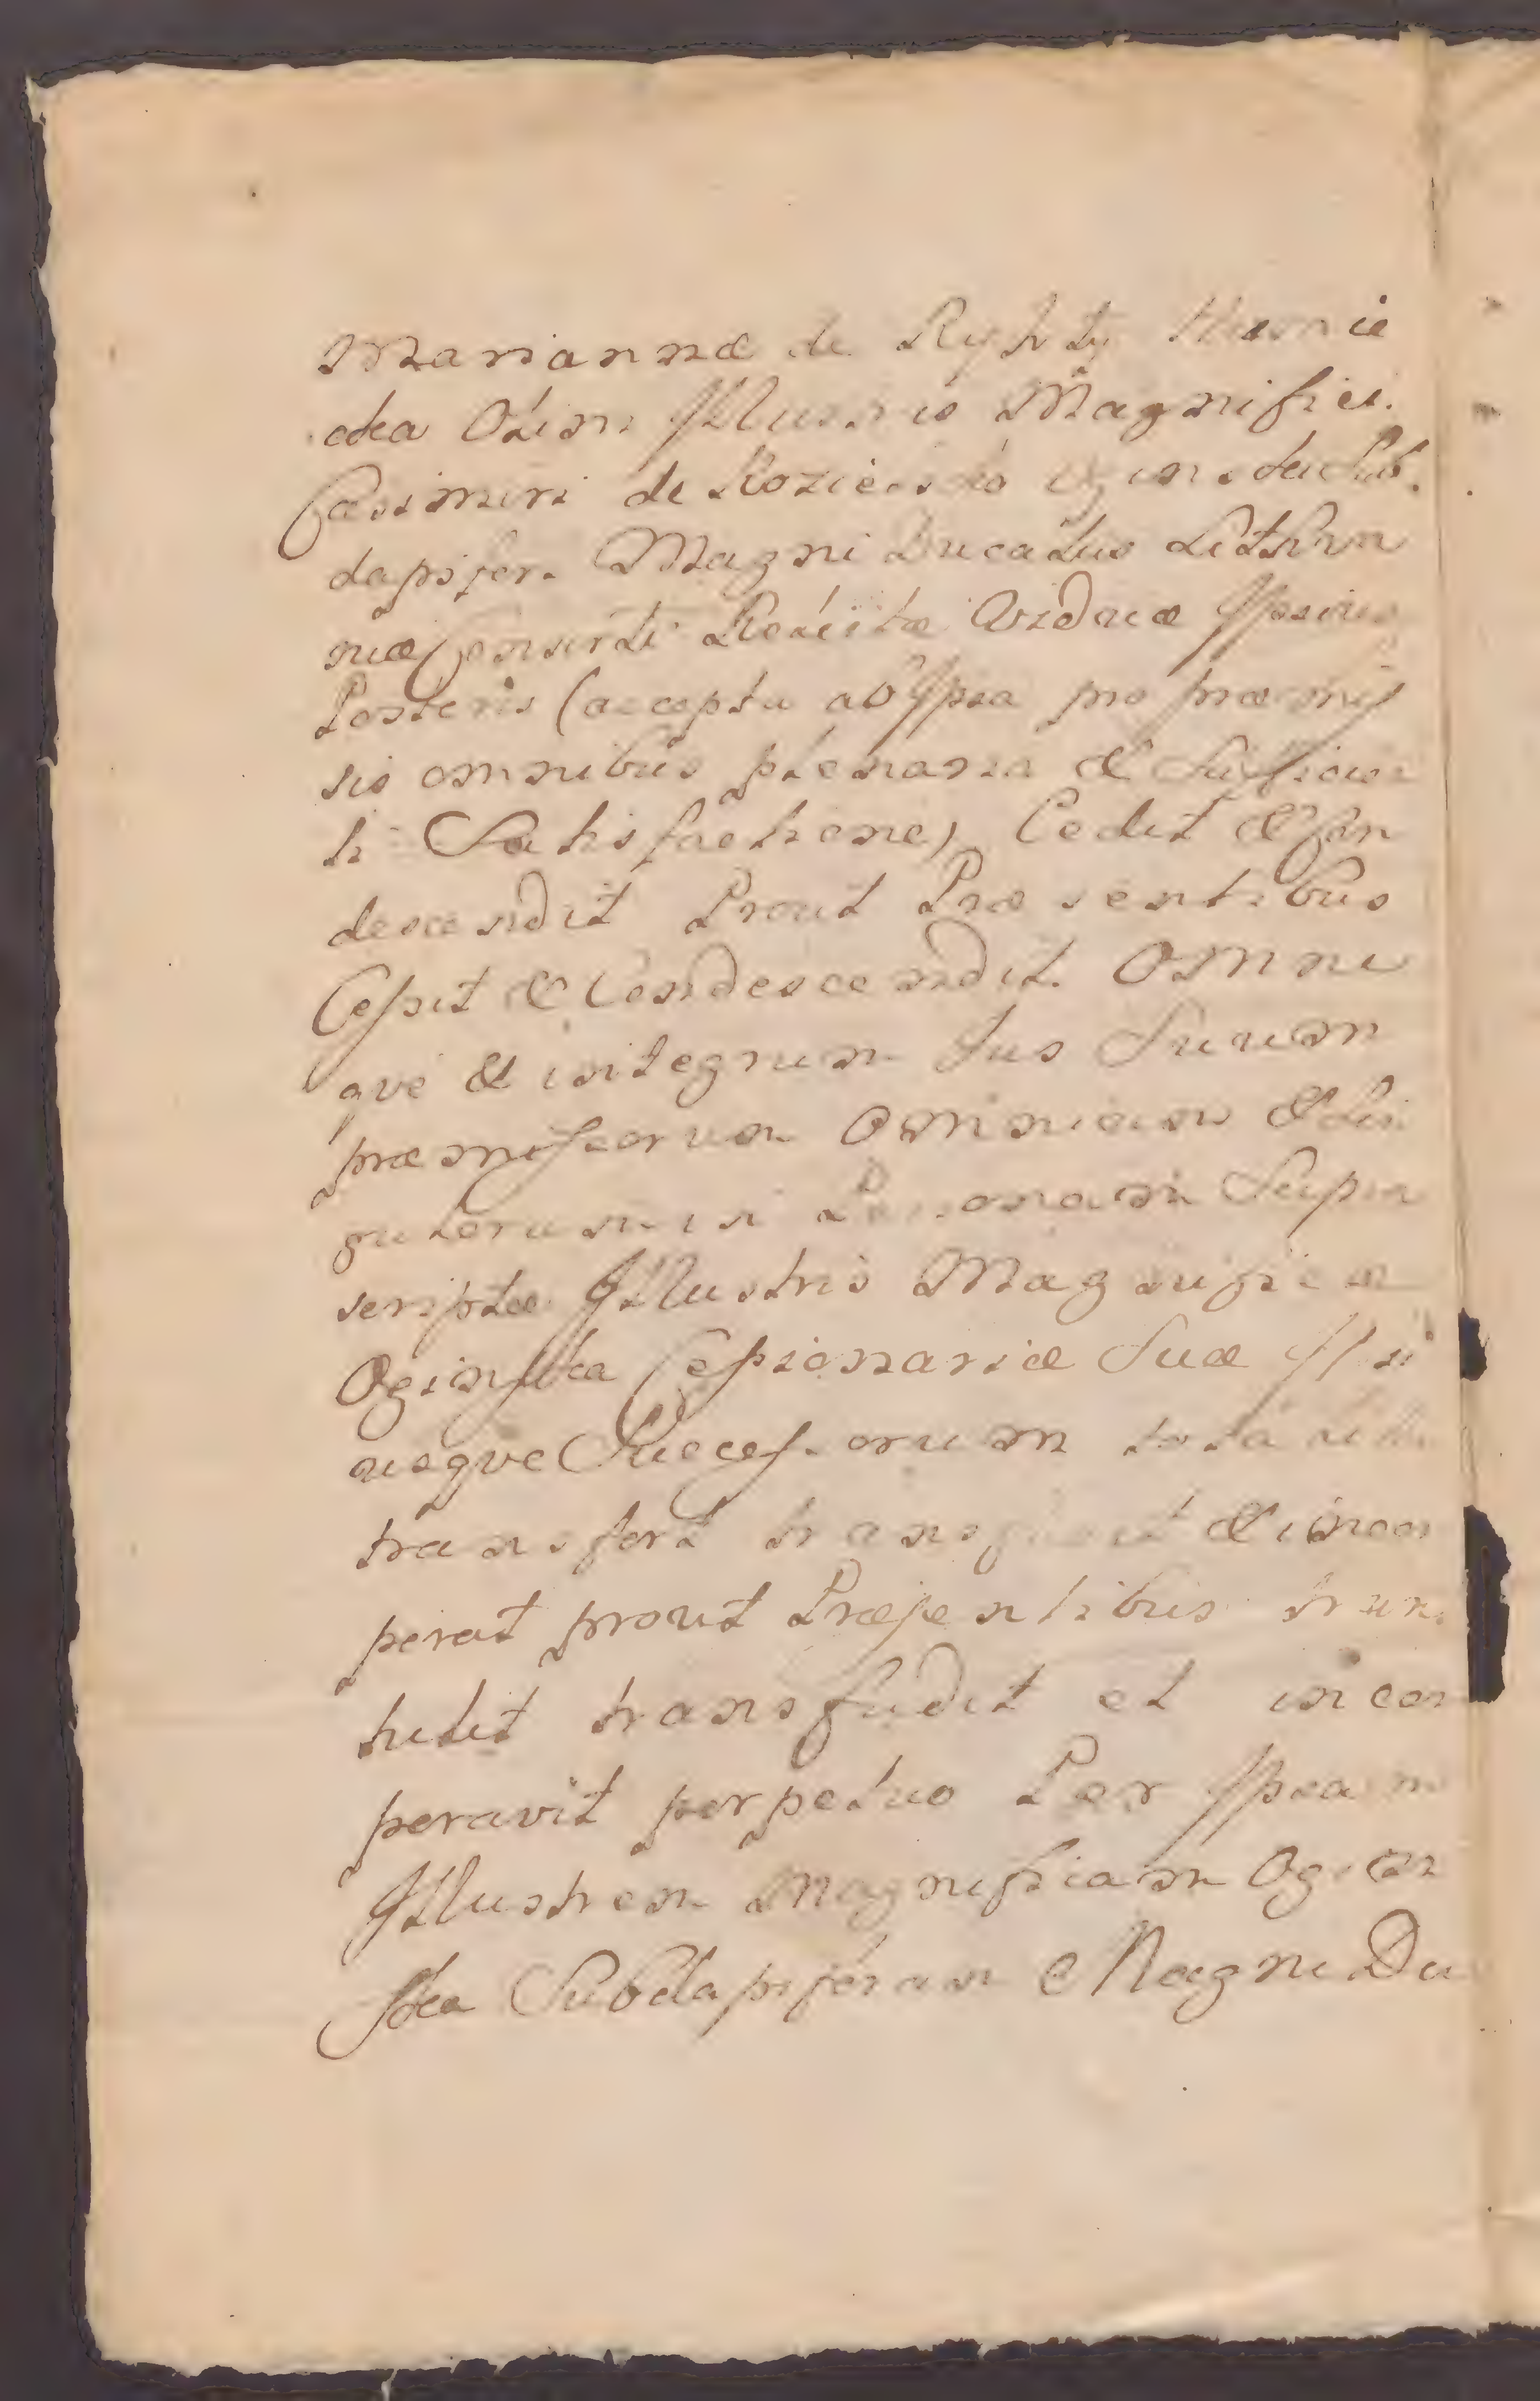 Mariannæ de Ryhty
cka Olim Jllustris Magnifici.
Casimiri de Kozielsko Oginski Sub.
dapifer. Magni Ducatus Lithva
niæ Consorti Relictæ Viduæ Jpsius
Posteris (accepta ab Jpsa pro præmis
sis omnibus plenaria & Sufficien
ti Satisfactione) Cedit & Con
descendit Prout Præsentibus
Cessit & Condescendit. Omne
qve & integrum Jus Suum
præmissorum Omnium & Sin
gulorum in Personam Supra
scriptæ Jllustris Magnificæ
Oginska Cessionariæ Suæ Jpsi
usqve Successorum
transfert transfundit & incor
perat prout Præsentibus trans
tulit transfudit et incor
peravit perpetuo Per Jpsam
Jllustrem Magnificam Ogin
ska Subdapiferam Magni Du